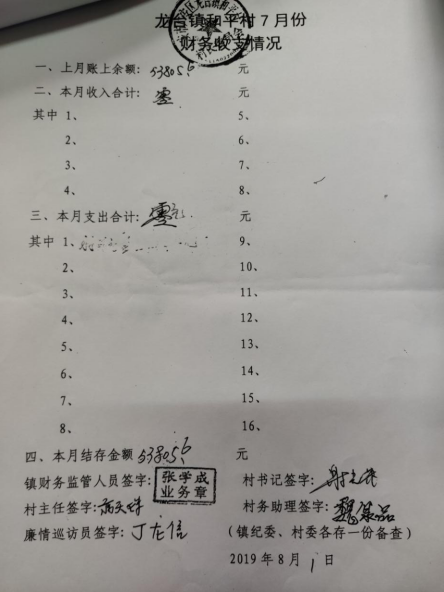 龙台镇和平村7月份
财务收支情况
一、上月账上余额: 538056 元
二、本月收入合计: 零 元
其中 1、 5、
2、 6、
3、 7、
4、 8、
三、本月支出合计: 零元 元
其中 1、 9、
2、 10、
3、 11、
4、 12、
5、 13、
6、 14、
7、 15、
8、 16、
四、本月结存金额 538056 元
镇财务监管人员签字: 张学成 业务章 村书记签字:
村主任签字: 村务助理签字:
廉情巡访员签字: 丁左信 (镇纪委、村委各存一份备查)
2019年8月1日